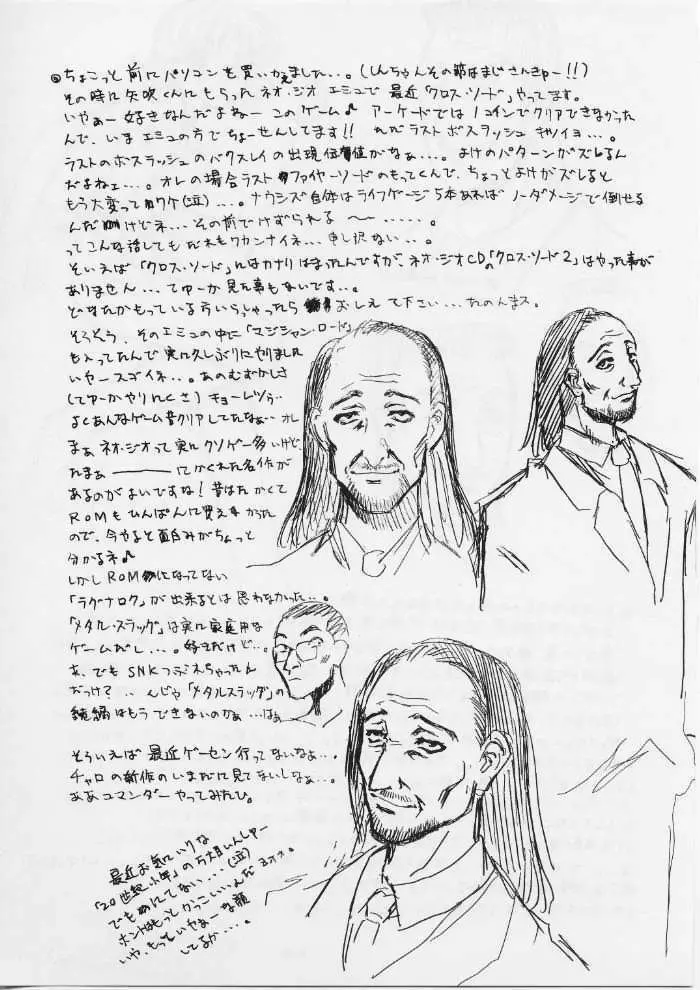 ◎ちょこっと前にパソコンを買いかえました…。(しんちゃんその節はまじさんきゅー!!)
その時に矢吹くんにもらったネオ・ジオエミュで最近「クロス・ソード」やってます。
いやぁー好きなんだよねーこのゲーム♪ アーケードでは1コインでクリアできなかった
んで、いまエミュの方でちょーせんしてます!! ただラストボスラッシュキツイヨ…。
ラストのボスラッシュのバクスレイの出現位置がなぁ…。よけのパターンがズレるん
だよねェ…。オレの場合ラストファイヤーソードのもってくんで、ちょっとよけがズレると
もう大変ってワケ(泣)…。ナウシズ自体はライフゲージ5本あれば ノーダメージで倒せる
んだけどネ…その前でけずられる 〜……。
ってこんな話してもだれもワカンナイネ…申し訳ない…。
そいえば「クロス・ソード」にはカナリはまったんですが、ネオ・ジオCDの「クロス・ソード2」はやった事が
ありません…てゆーか見た事もないです…。
どなたかもっている方いらっしゃったら おしえて下さい…たのんます。
そうそう、そのエミュの中に「マジシャン・ロード」
も入ってたんで実に久しぶりにやりました
いやースゴイネ…。あのむずかしさ
(てゆーかやりにくさ)キョーレツぅ…
よくあんなゲーム昔クリアしてたなぁ…オレ
まぁネオ・ジオって実にクソゲー多いけど
たまぁ――――にかくれた名作が
あるのがよいですね!昔はたかくて
ROMもひんぱんに買えなかった
ので、今やると面白みがちょっと
分かるネ♪
しかしROMになってない
「ラグナロク」が出来るとは思わなかった…。
「メタル・スラッグ」は実に家庭用な
ゲームだし…。好きだけど…。
あ、でもSNKつぶれちゃったん
だっけ?‥んじゃ「メタルスラッグ」の
続編はもうできないのかぁ…はぁ
そういえば最近ゲーセン行ってないなぁ…。
チャロの新作のいまだに見てないしなぁ…。
ああコマンダーやってみたひ。
最近お気にいりな
「20世紀少年」の万丈目いんしゅー
でもにてない…(泣)
ホントはもっとかっこいいんだ
いや、もっといやぁーな顔
してるか…。